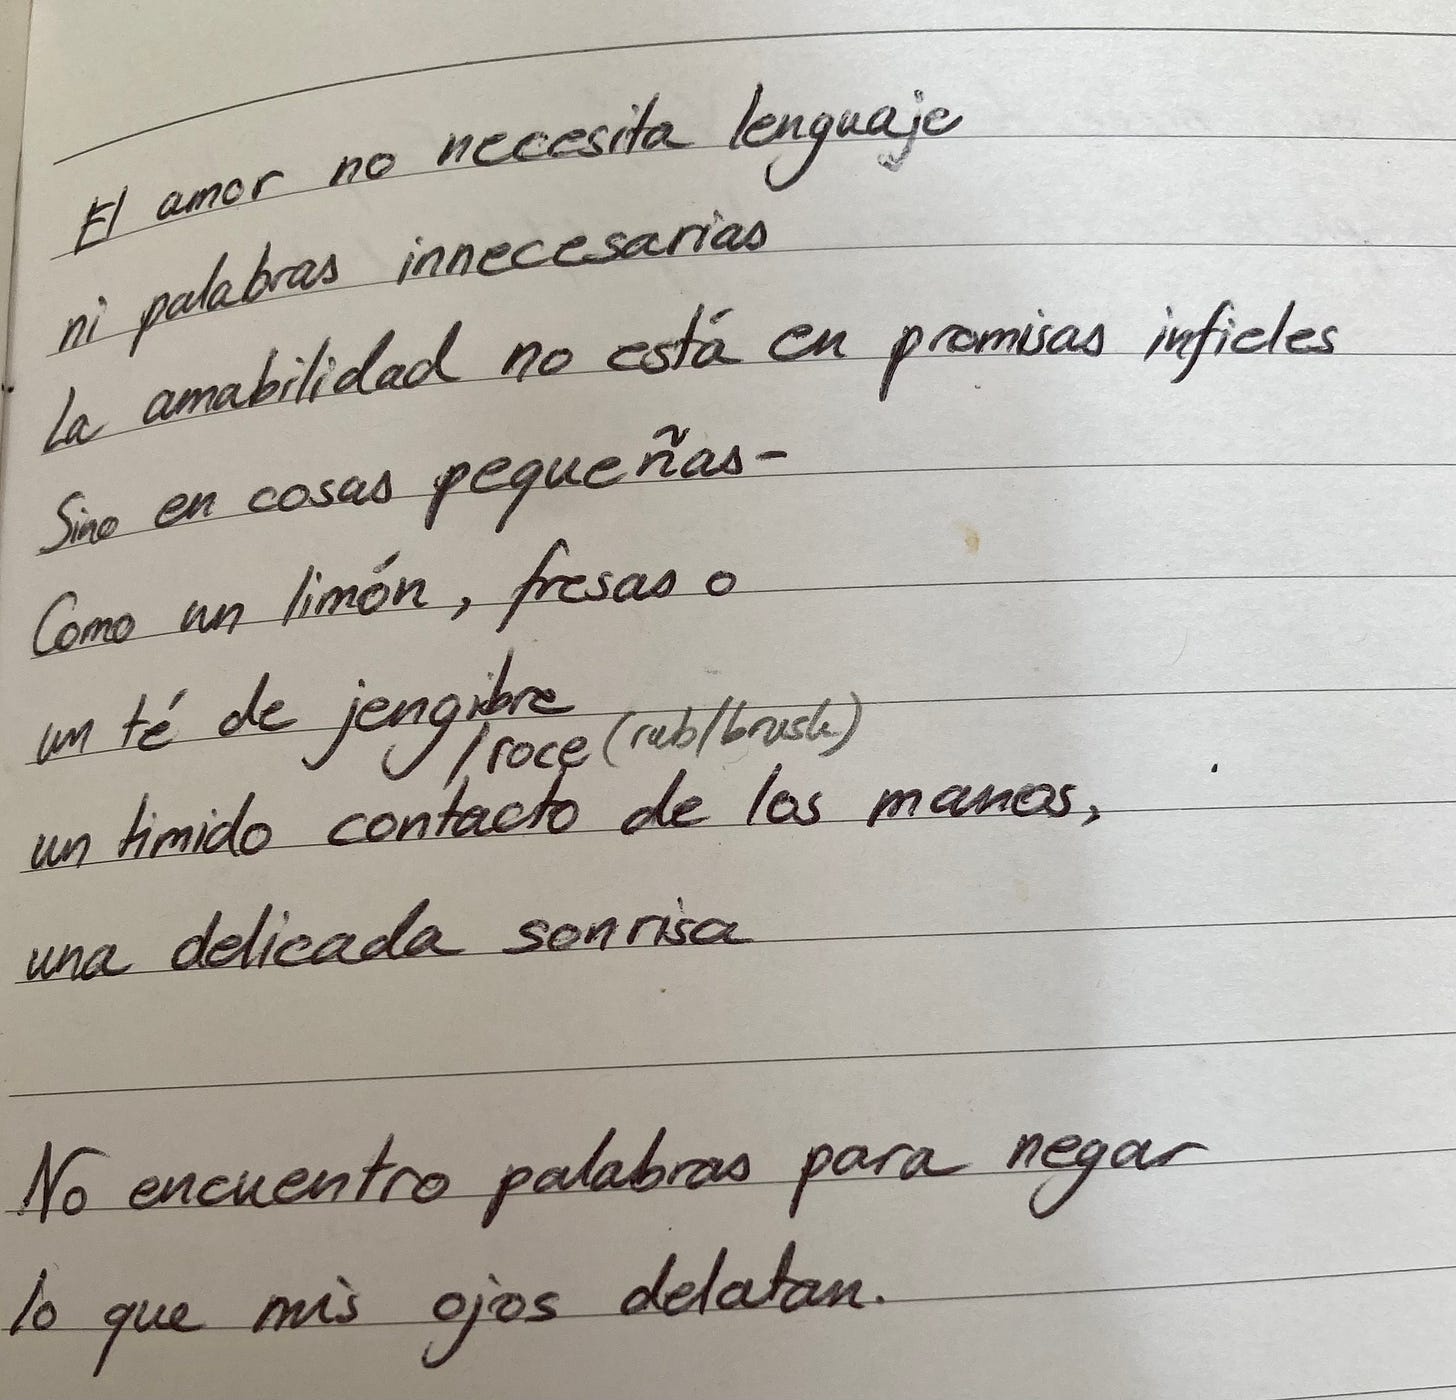 El amor no necesita lenguaje
ni palabras innecesarias
La amabilidad no está en promisas infieles
Sino en cosas pequeñas-
Como un limón, fresas o
un té de jengibre
/roce (rub/brush)
un timido contacto de las manos,
una delicada sonrisa
No encuentro palabras para negar
lo que mis ojos delatan.